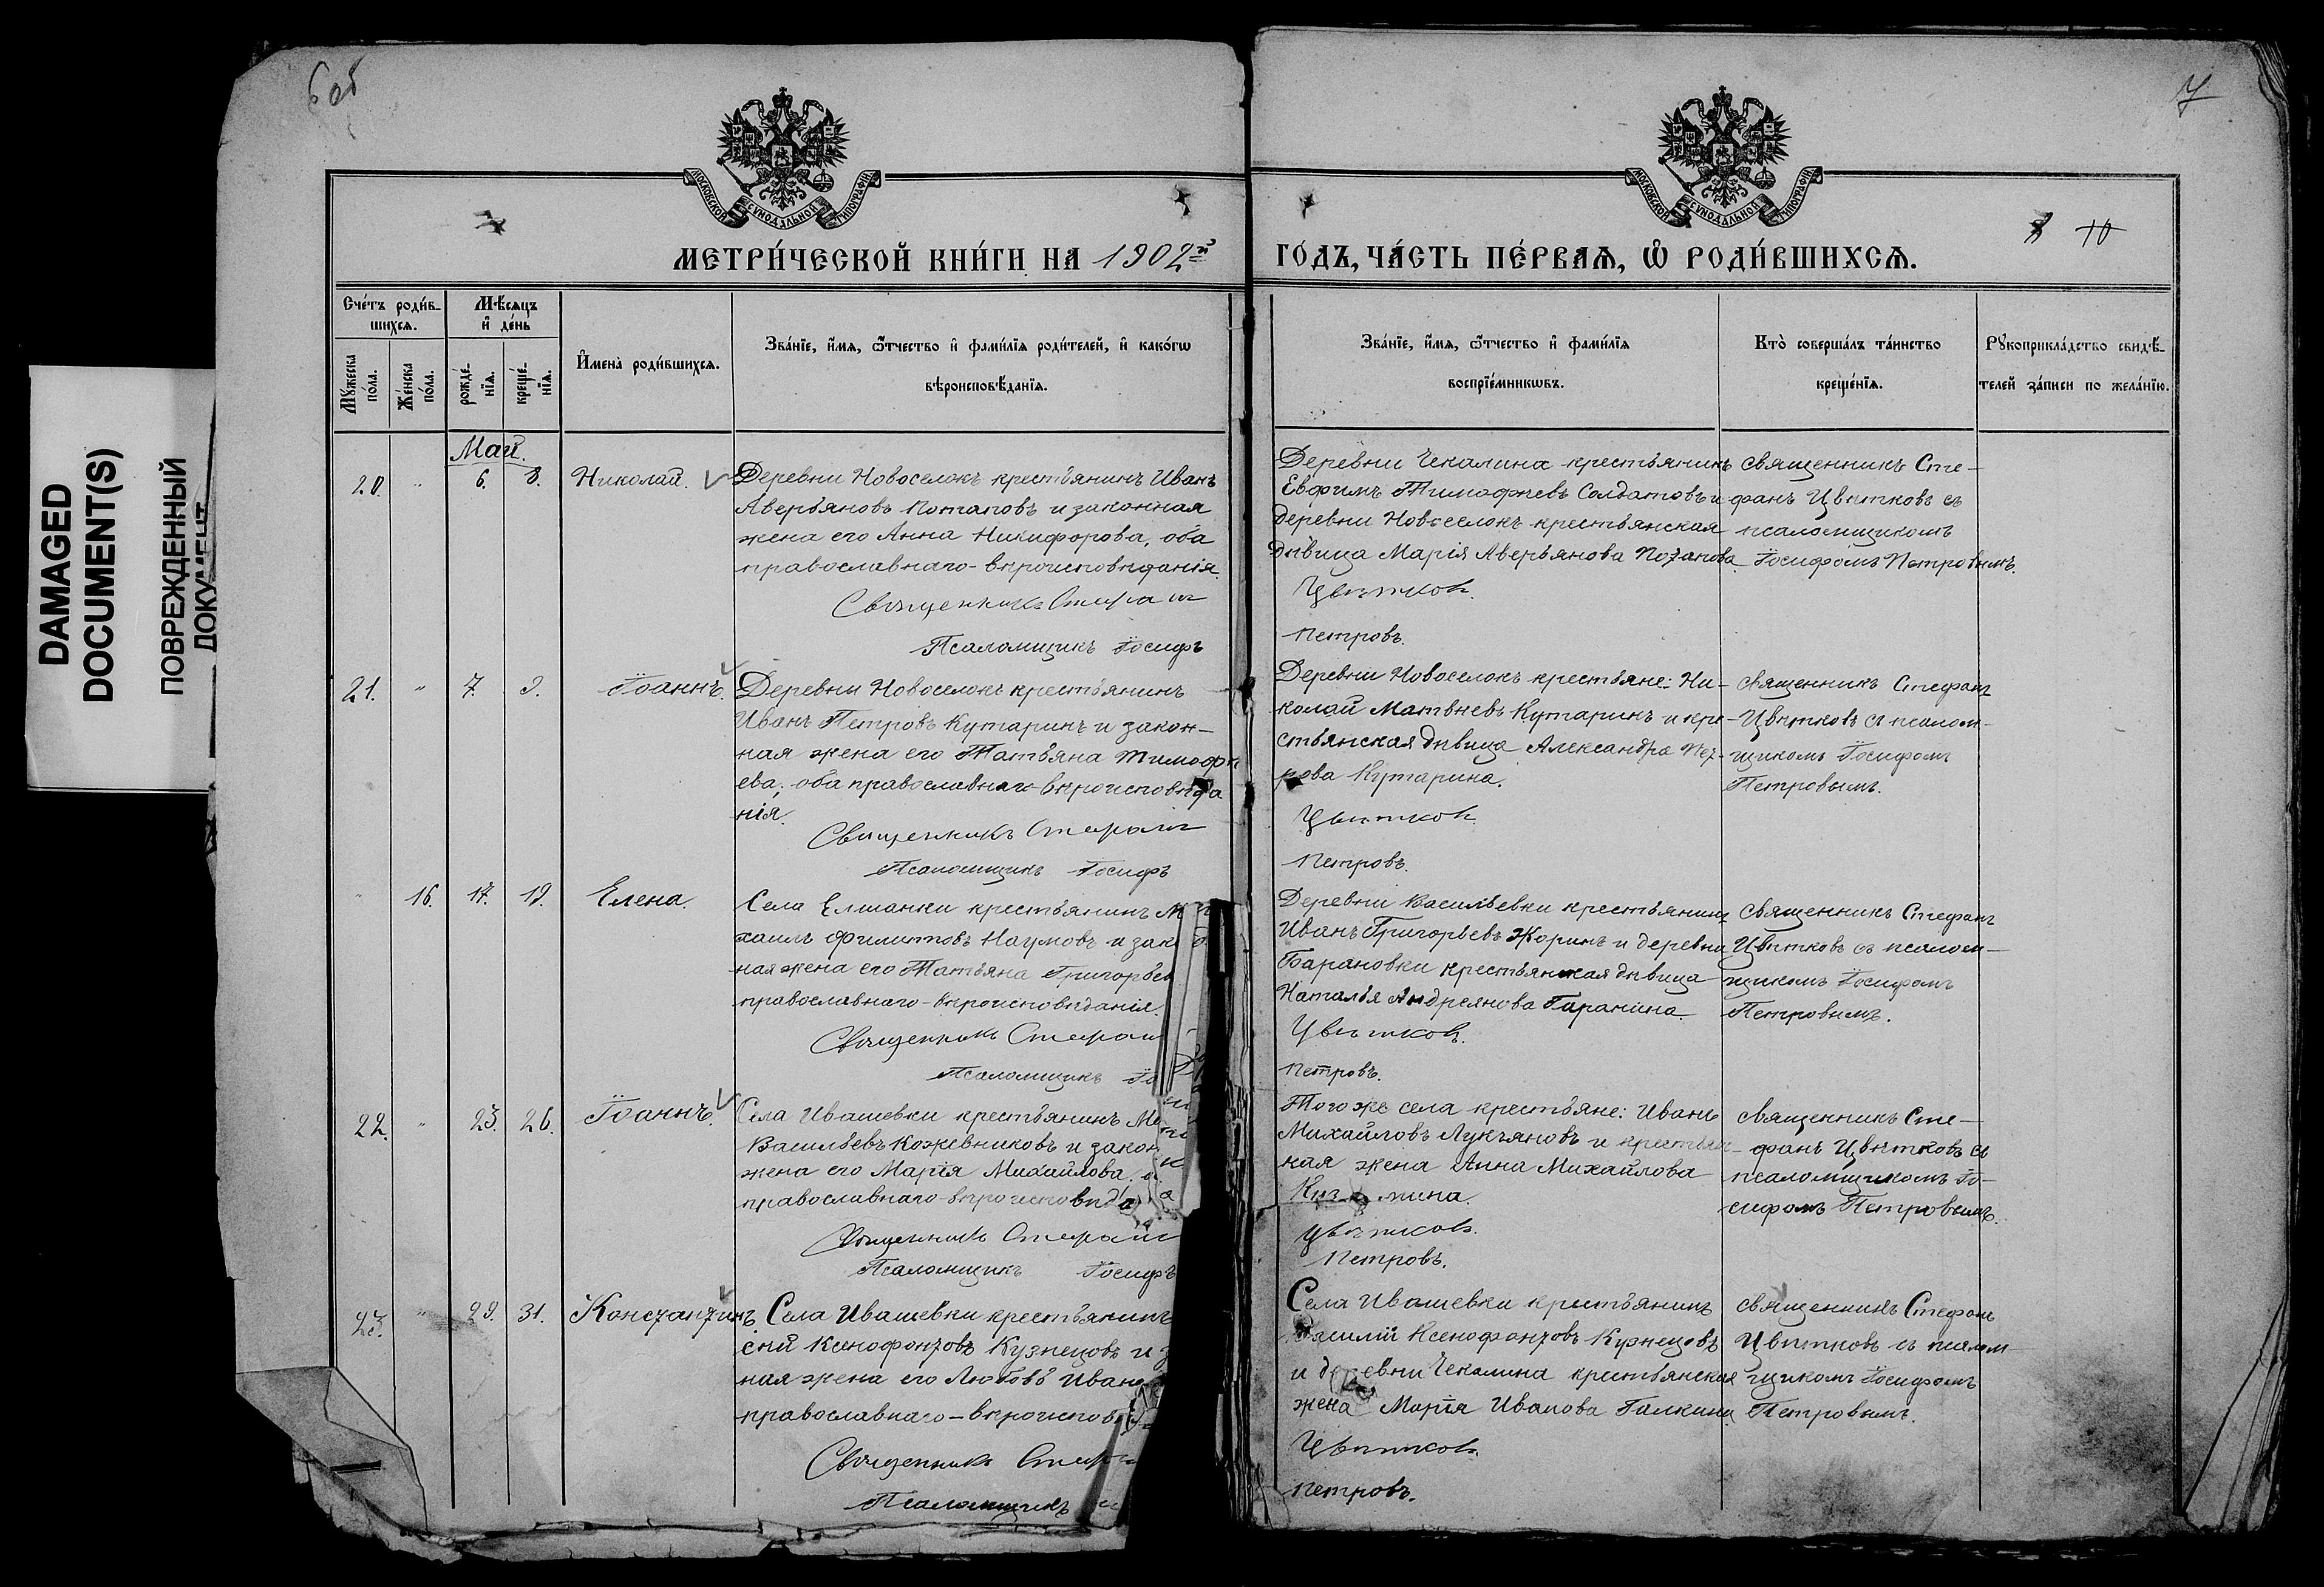 DAMAGED
DOCUMENT(S)
ПОВРЕЖДЕННЫЙ
ДОКУМЕНТ
6 об
7
МОСКОВСКОЙ СѴНОДАЛЬНОЙ ТИПОГРАФІИ
МОСКОВСКОЙ СѴНОДАЛЬНОЙ ТИПОГРАФІИ
10
МЕТРИ́ЧЕСКОЙ КНИ́ГИ НА 1902й
ГО́ДЪ, ЧА́СТЬ ПЕ́РВАѦ, Ѡ҆ РОДИ́ВШИХСѦ.
Сче́тъ роди́в-
шихсѧ.
Мꙋжеска
по́ла.
Же́нска
по́ла.
Мѣ́сѧцъ
и҆ де́нь
рожде́-
нїѧ.
креще́-
нїѧ.
И҆мена̀ роди́вшихсѧ.
Зва́нїе, и҆́мѧ, ѻ҆́тчество и҆ фами́лїѧ роди́телей, и҆ како́гѡ
вѣроисповѣ́данїѧ.
Зва́нїе, и҆́мѧ, ѻ҆́тчество и҆ фами́лїѧ
воспрїе́мникѡвъ.
Кто̀ соверша́лъ та́инство
креще́нїѧ.
Рꙋкоприкла́дство свидѣ́-
телей за́писи по жела́нїю.
Май.
20. " 6. 8. Николай.
Деревни Новоселокъ крестьянинъ Иванъ
Аверьяновъ Потаповъ и законная
жена его Анна Никифорова, оба
православнаго-вѣроисповѣданія.
Священникъ Стефанъ
Псаломщикъ Іосифъ
Деревни Чекалина крестьянинъ
Евфимъ Тимофѣевъ Солдатовъ и
деревни Новоселокъ крестьянская
дѣвица Марія Аверьянова Потапова
Цвѣтковъ.
Петровъ.
священникъ Сте-
фанъ Цвѣтковъ съ
псаломщикомъ
Іосифомъ Петровымъ.
21. " 7. 9. Іоаннъ.
Деревни Новоселокъ крестьянинъ
Иванъ Петровъ Кутаринъ и закон-
ная жена его Татьяна Тимофѣ
ева; оба православнаго вѣроисповѣда
нія.
Священникъ Стефанъ
Псаломщикъ Іосифъ
Деревни Новоселокъ крестьяне: Ни-
колай Матвѣевъ Кутаринъ и кре-
стьянская дѣвица Александра Пет-
рова Кутарина.
Цвѣтковъ
Петровъ.
священникъ Стефанъ
Цвѣтковъ съ псалом-
щикомъ Іосифомъ
Петровымъ.
" 16. 17. 19. Елена.
Села Елшанки крестьянинъ М
хаилъ Филипповъ Наумовъ и зак
ная жена его Татьяна Григорьев
православнаго-вѣроисповѣданія.
Священникъ Стефан
Псаломщикъ Іо
Деревни Васильевки крестьянинъ
Иванъ Григорьевъ Жоринъ и деревни
Барановки крестьянская дѣвица
Наталья Андреянова Гаранина.
Цвѣтковъ.
Петровъ.
священникъ Стефанъ
Цвѣтковъ съ псалом-
щикомъ Іосифомъ
Петровымъ.
22. " 23. 26. Іоаннъ.
Села Ивашевки крестьянинъ
Васильевъ Кожевниковъ и закон
жена его Марія Михайлова.
православнаго-вѣроисповѣда
Священникъ Стефан
Псаломщикъ Іосифъ
Того же села крестьяне: Иванъ
Михайловъ Лукьяновъ и крестьян-
ская жена Анна Михайлова
Цвѣтковъ.
Петровъ.
священникъ Сте-
фанъ Цвѣтковъ съ
псаломщикомъ Іо-
сифомъ Петровымъ.
23. " 29. 31. Константинъ
Села Ивашевки крестьянинъ
сій Ксенофонтовъ Кузнецовъ и з
ная жена его Любовь Иван
православнаго-вѣроиспов
Священникъ Стеф
Псаломщикъ
Села Ивашевки крестьянинъ
Василій Ксенофонтовъ Кузнецовъ
и деревни Чекалина крестьянская
жена Марія Иванова Галкина
Цвѣтковъ.
Петровъ.
священникъ Стефанъ
Цвѣтковъ съ псалом
щикомъ Іосифомъ
Петровымъ.